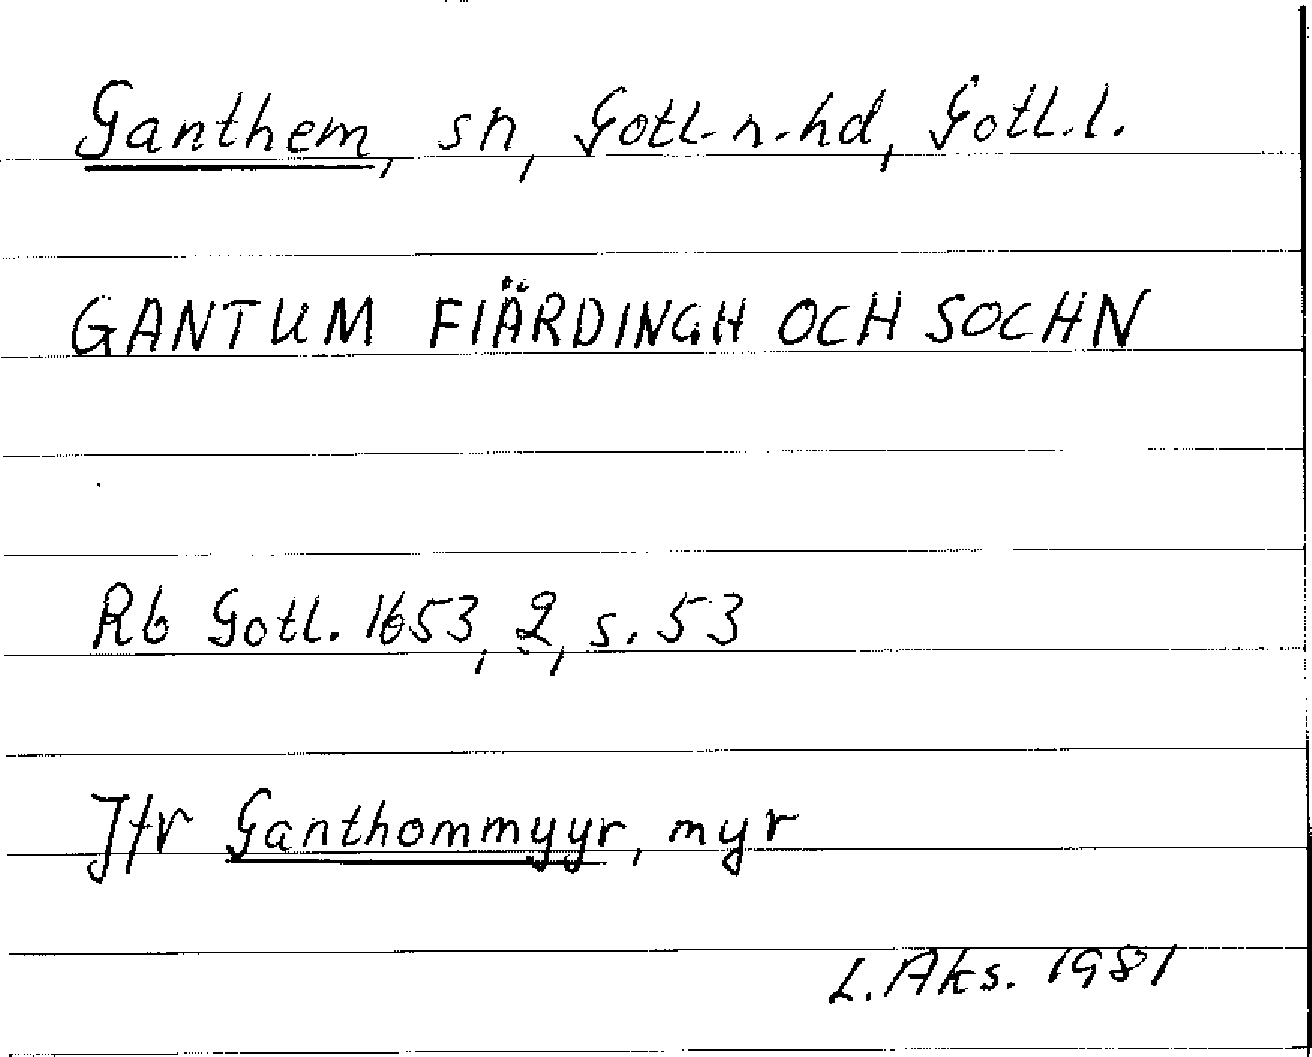 Ganthem, sn, Gotl. n. hd, Gotl. l.
GANTUM FIÄRDINGH OCH SOCHN
Rb Gotl. 1653, 2, s. 53
Jfr Ganthommyyr, myr
L. Aks. 1981